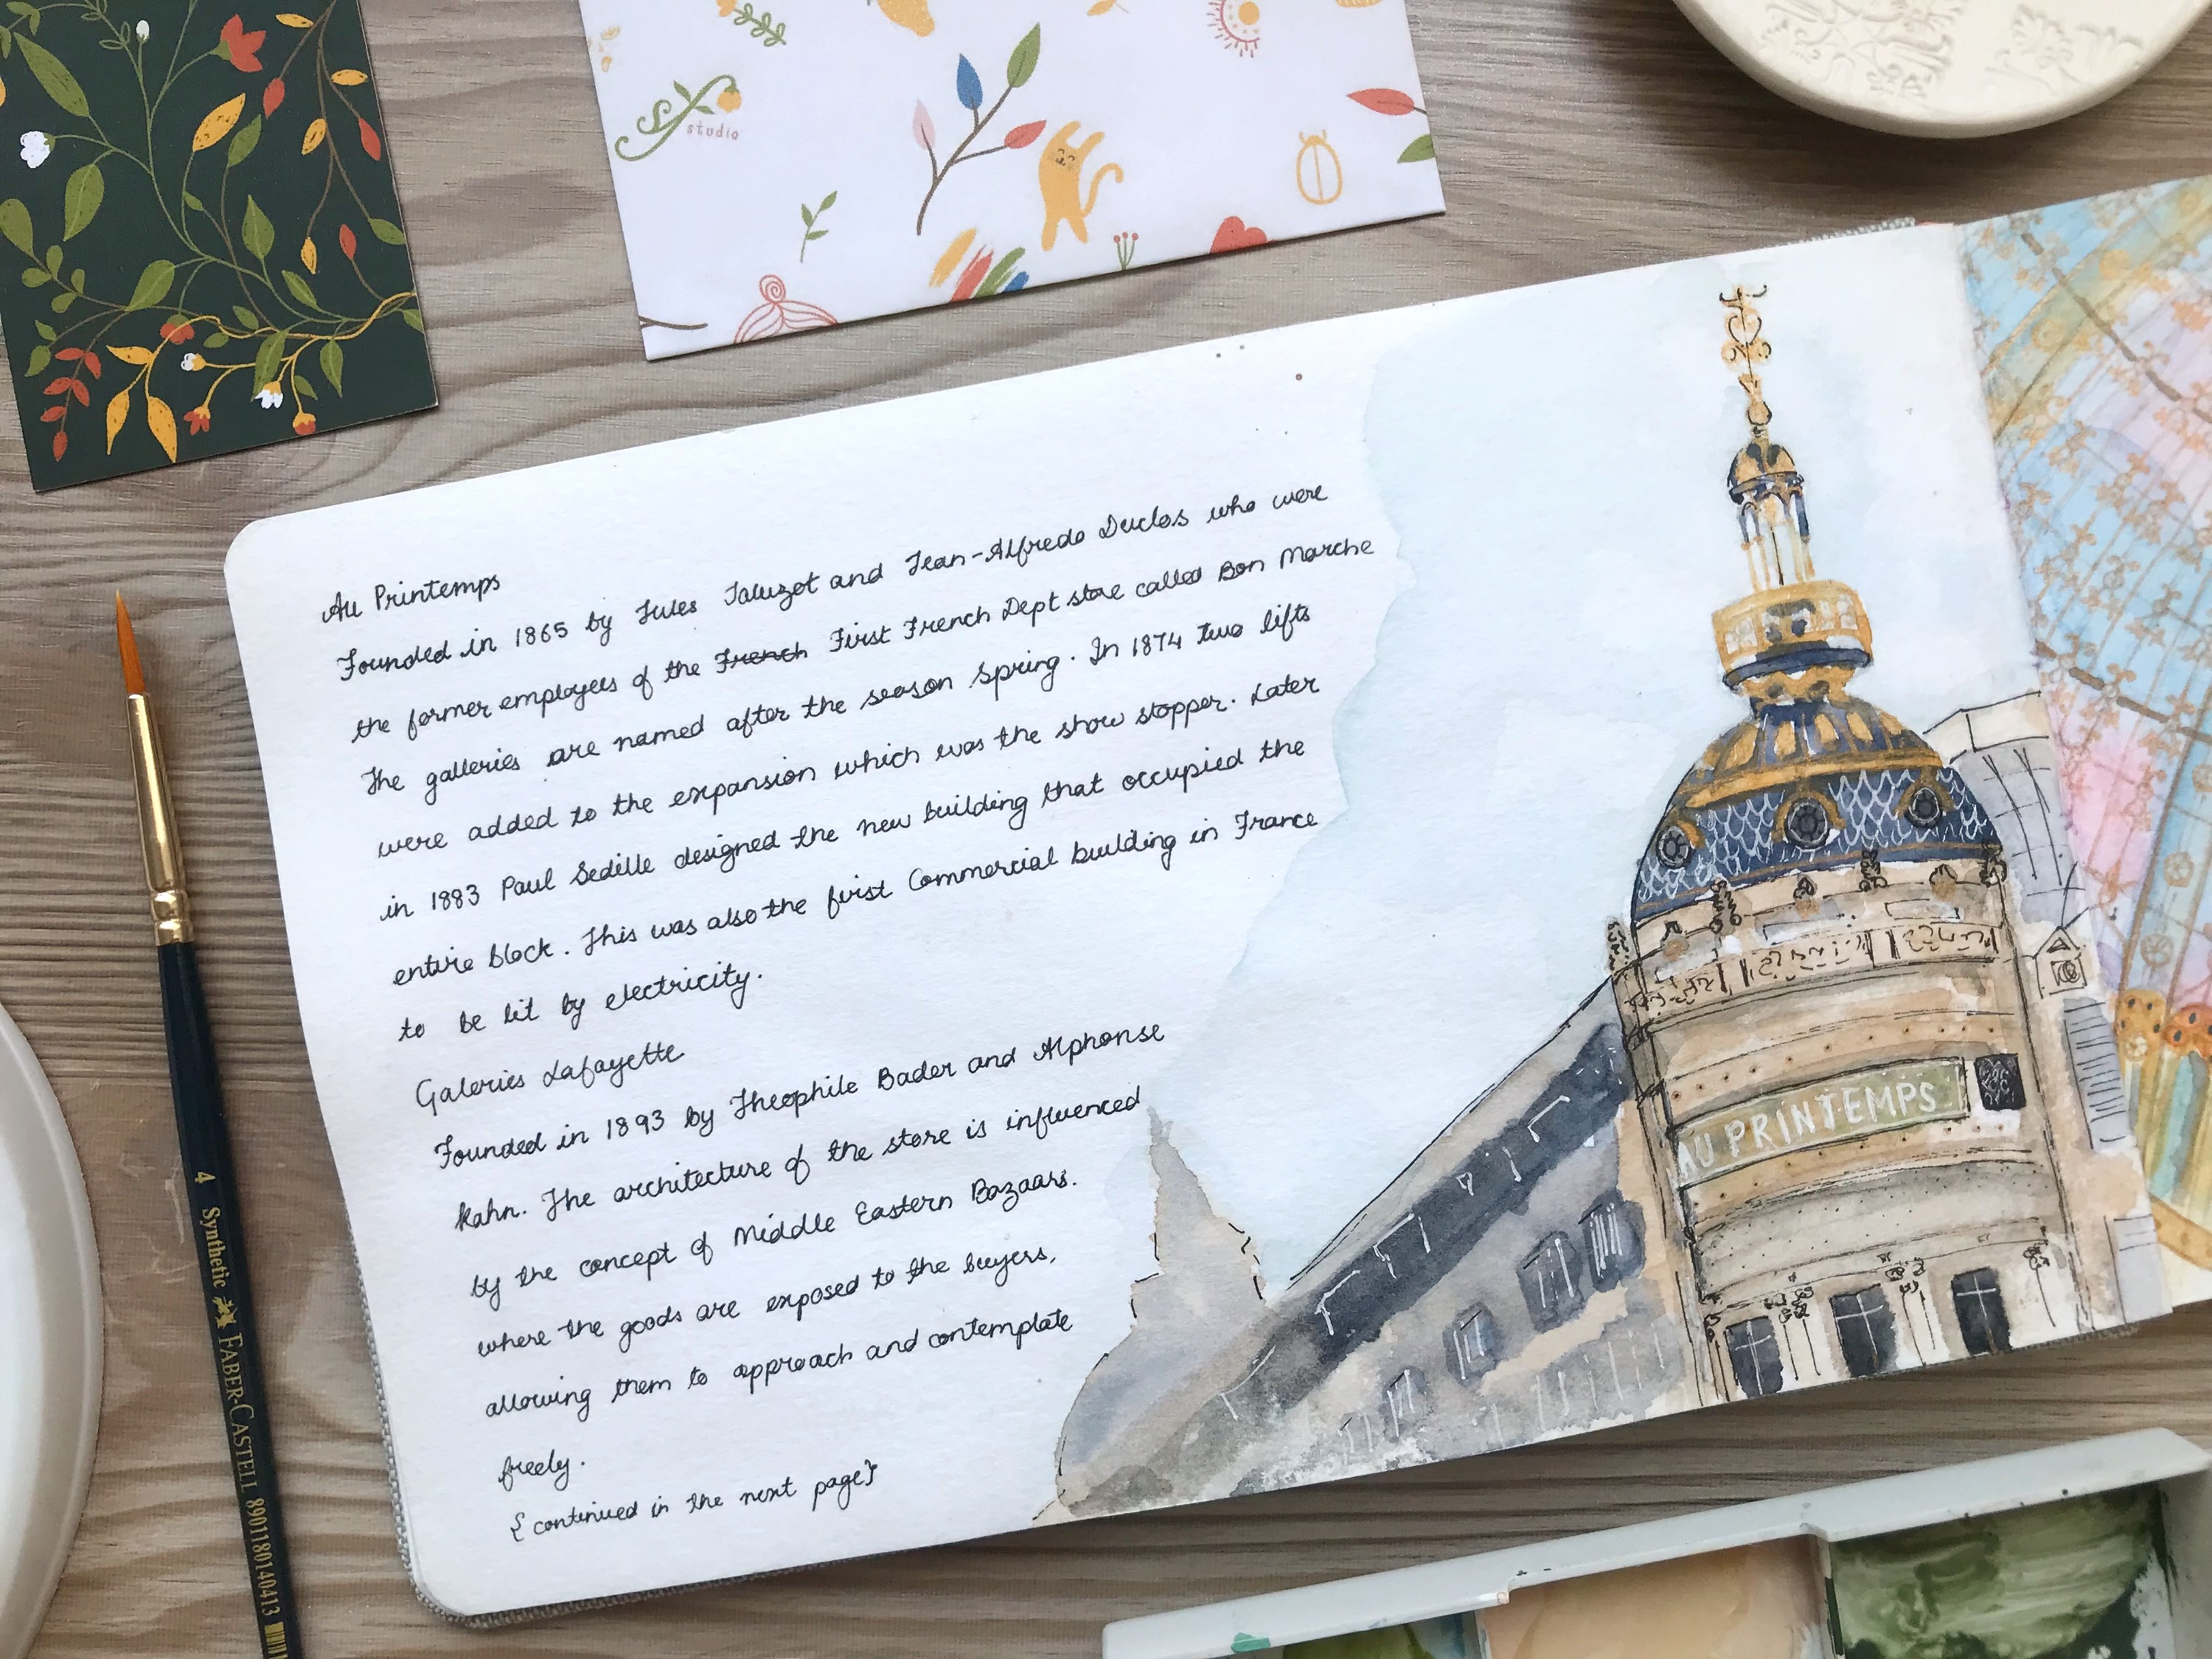 studio
Au Printemps
Founded in 1865 by Jules Jaluzot and Jean-Alfredo Duclos who were
the former employees of the French First French Dept store called Bon Marche
The galleries are named after the season spring. In 1874 two lifts
were added to the expansion which was the show stopper. Later
in 1883 Paul Sedille designed the new building that occupied the
entire block. This was also the first Commercial building in France
to be lit by electricity.
Galeries Lafayette
Founded in 1893 by Theophile Bader and Alphonse
Kahn. The architecture of the store is influenced
by the concept of Middle Eastern Bazaars.
where the goods are exposed to the buyers,
allowing them to approach and contemplate
freely.
{continued in the next page}
AU PRINTEMPS
4 Synthetic FABER-CASTELL 8901180140413